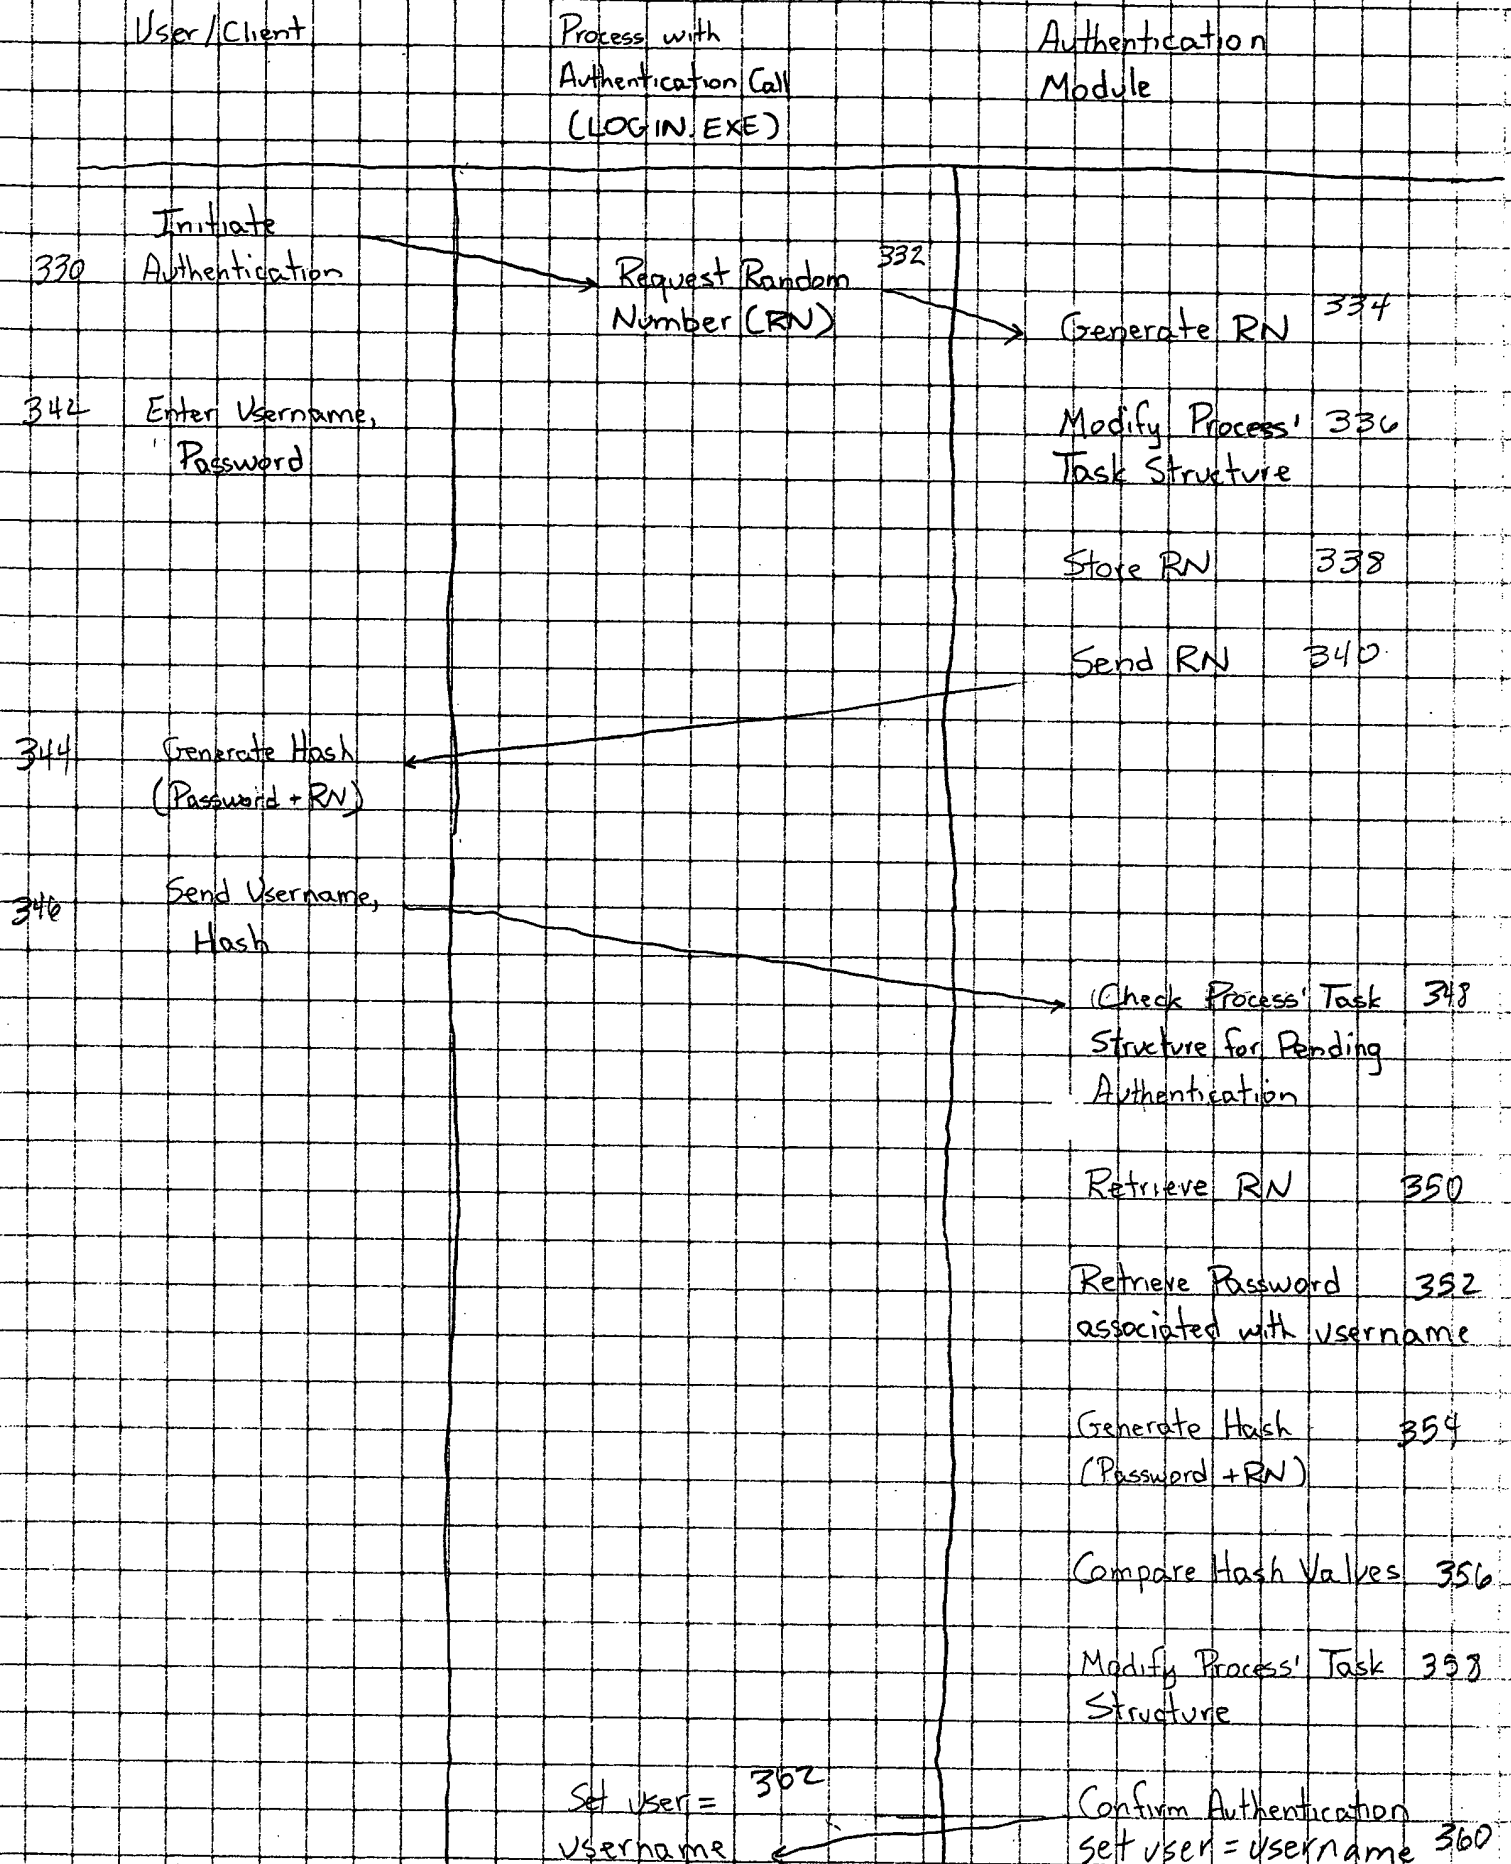 User/Client
Process with
Authentication Call
(LOGIN.EXE)
Authentication
Module
Initiate
330 Authentication
Request Random 332
Number (RN)
Generate RN 334
342 Enter Username,
Password
Modify Process' 336
Task Structure
Store RN 338
Send RN 340
344 Generate Hash
(Password + RN)
346 Send Username,
Hash
Check Process' Task 348
Structure for Pending
Authentication
Retrieve RN 350
Retrieve Password 352
associated with username
Generate Hash 354
(Password + RN)
Compare Hash Values 356
Modify Process' Task 358
Structure
Set user = 362
username
Confirm Authentication
set user = username 360